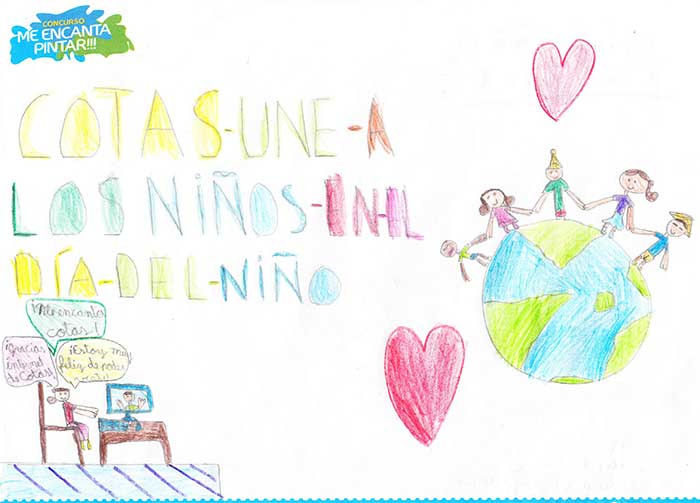 CONCURSO
ME ENCANTA
PINTAR!!!
COTAS-UNE-A
LOS NIÑOS-EN-EL
DÍA-DEL-NIÑO
¡Me encanta
cotas!
¡Gracias
internet
de Cotas!
¡Estoy muy
feliz de poder